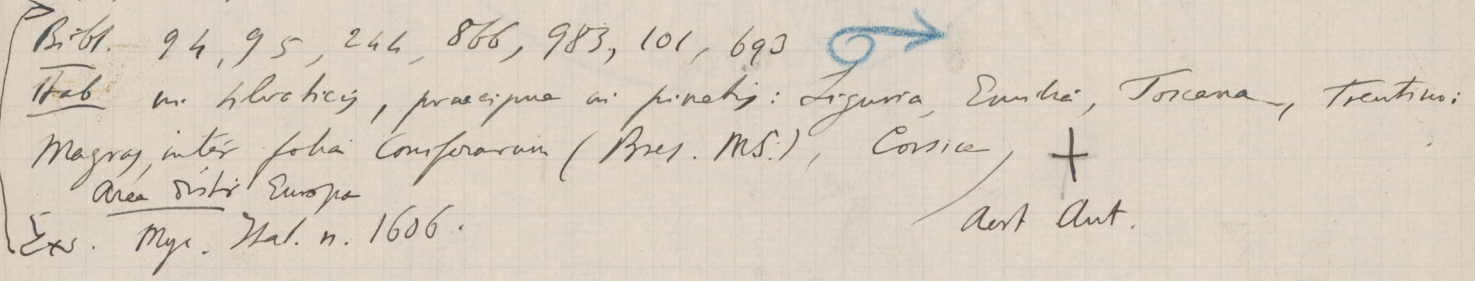 Bibl. 94, 95, 244, 866, 983, 101, 693
Hab in silvaticis, praecipue in pinetis: Liguria, Emilia, Toscana, Trentino:
Magras, inter folia Coniferarum (Bres. MS.), Corsica, +
Area distr Europa
Aest Aut.
Exs. Myc. Ital. n. 1606.